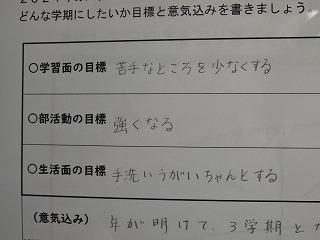 どんな学期にしたいか目標と意気込みを書きましょう。
○学習面の目標 苦手なところを少なくする
○部活動の目標 強くなる
○生活面の目標 手洗いうがいちゃんとする
（意気込み） 年が明けて、3学期と